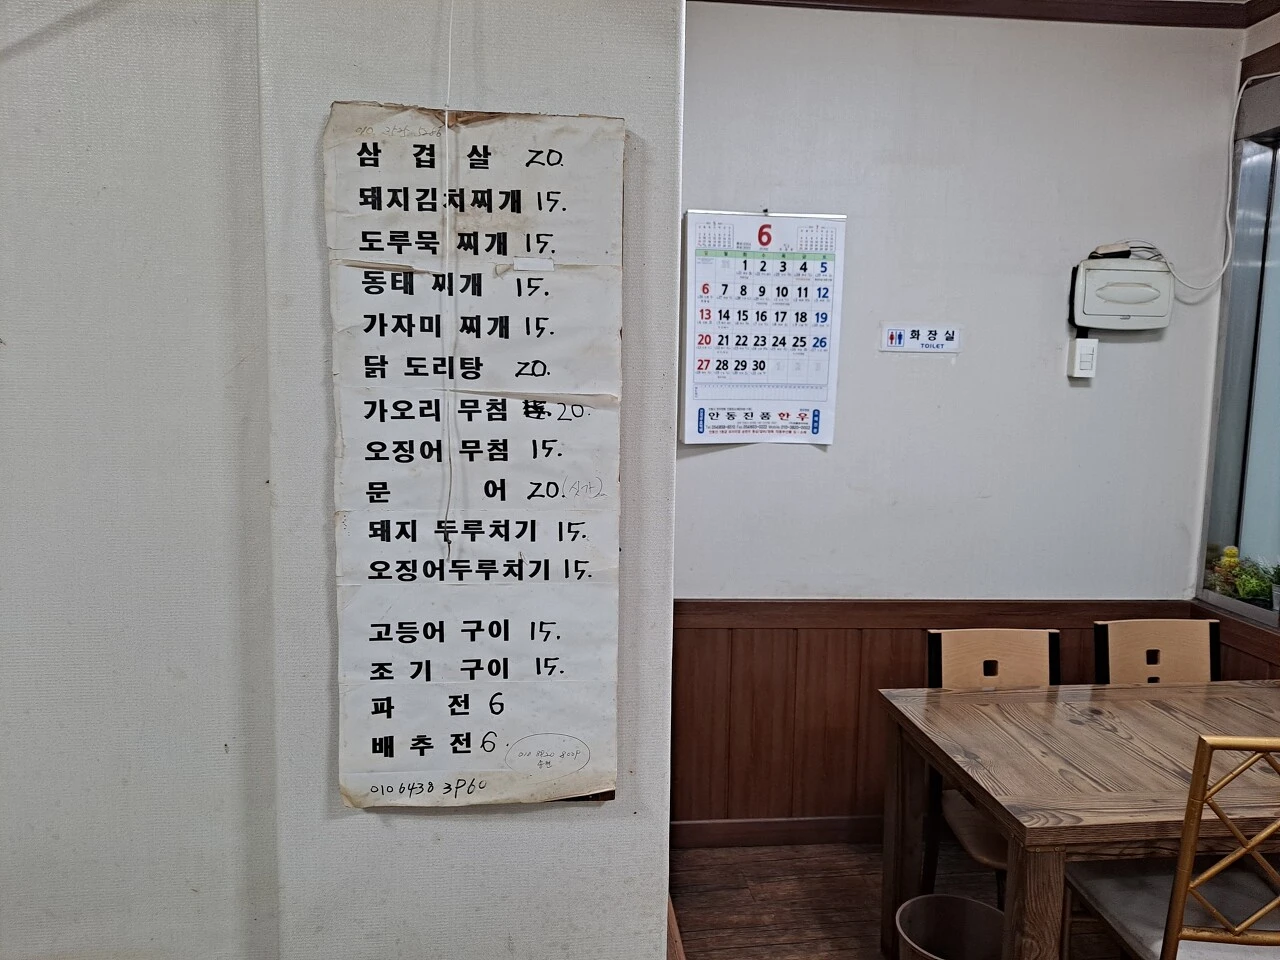 삼 겹 살 20.
돼지김치찌개 15.
도루묵 찌개 15.
동태 찌개 15.
가자미 찌개 15.
닭 도리탕 20.
가오리 무침 20.
오징어 무침 15.
문 어 20. (싯가)
돼지 두루치기 15.
오징어두루치기 15.
고등어 구이 15.
조 기 구이 15.
파 전 6
배 추 전 6.
010 6438 3960
6
1 2 3 4 5
6 7 8 9 10 11 12
13 14 15 16 17 18 19
20 21 22 23 24 25 26
27 28 29 30
안동진품한우
화장실
TOILET